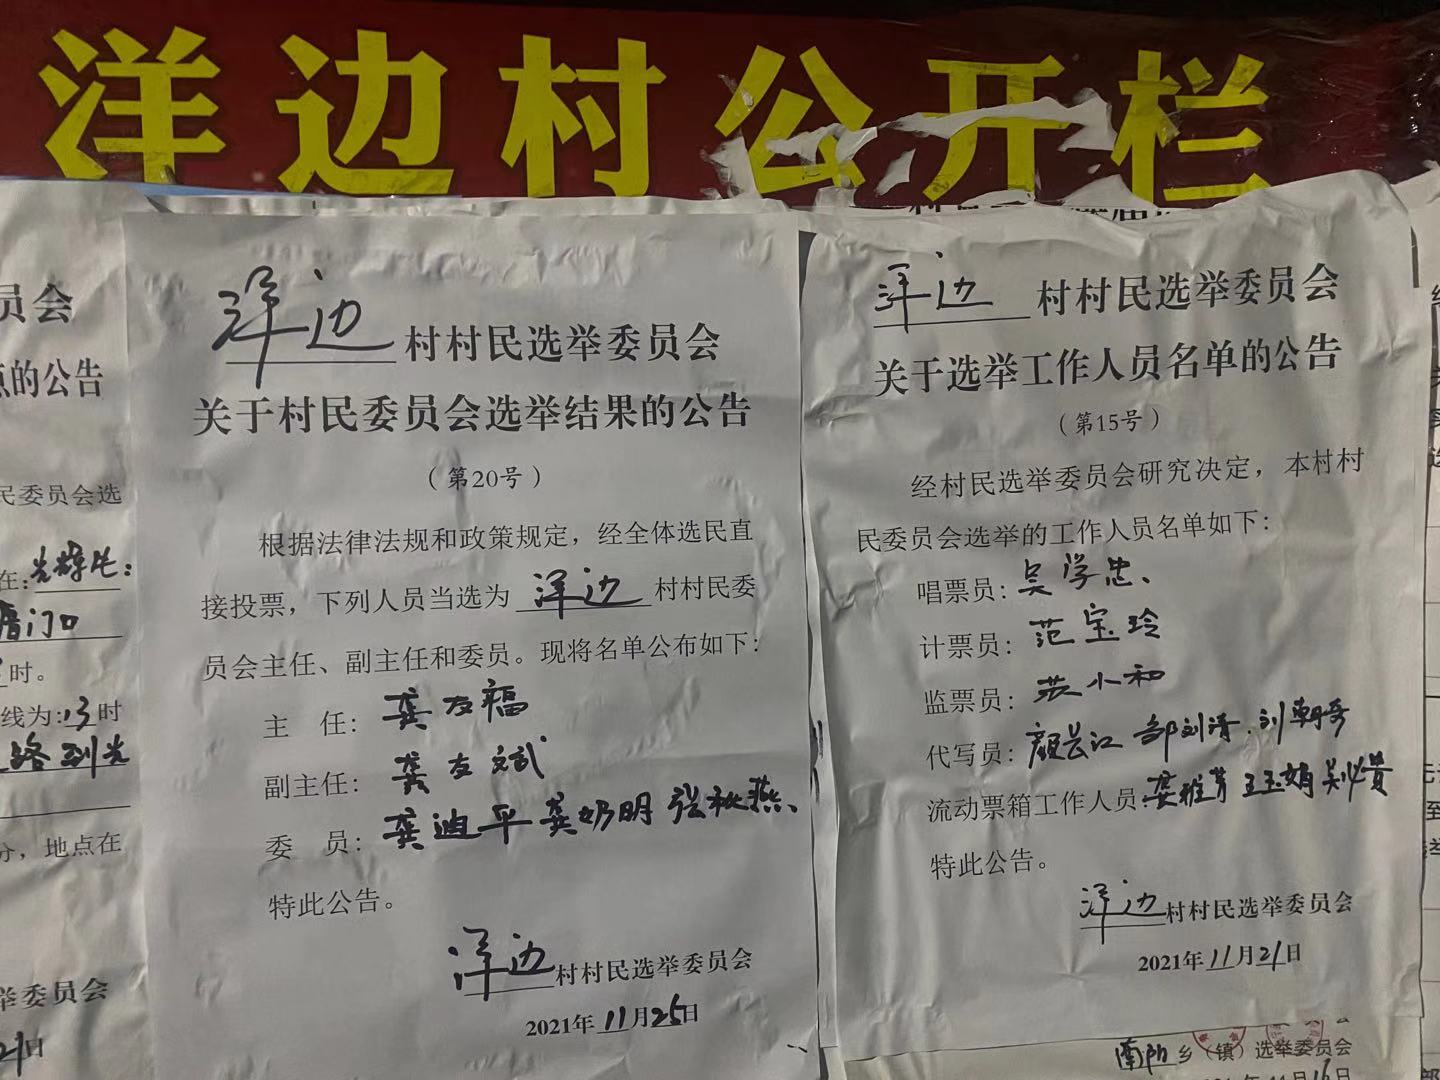 洋边村公开栏
员会
的公告
民委员会选
在:
门口
时。
线为:13时
路到光
分，地点在
举委员会
21日
洋边村村民选举委员会
关于村民委员会选举结果的公告
（第20号）
根据法律法规和政策规定，经全体选民直
接投票，下列人员当选为洋边村村民委
员会主任、副主任和委员。现将名单公布如下：
主 任：龚友福
副主任：龚友斌
委 员：龚迪平 龚奶明 张秋燕、
特此公告。
洋边村村民选举委员会
2021年11月25日
洋边村村民选举委员会
关于选举工作人员名单的公告
（第15号）
经村民选举委员会研究决定，本村村
民委员会选举的工作人员名单如下：
唱票员：吴学忠、
计票员：范宝玲
监票员：苏小和
代写员：颜长江 邹刘清、刘朝
流动票箱工作人员：龚雅芳 王玉娟 吴必贵
特此公告。
洋边村村民选举委员会
2021年11月21日
乡（镇）选举委员会
月16日